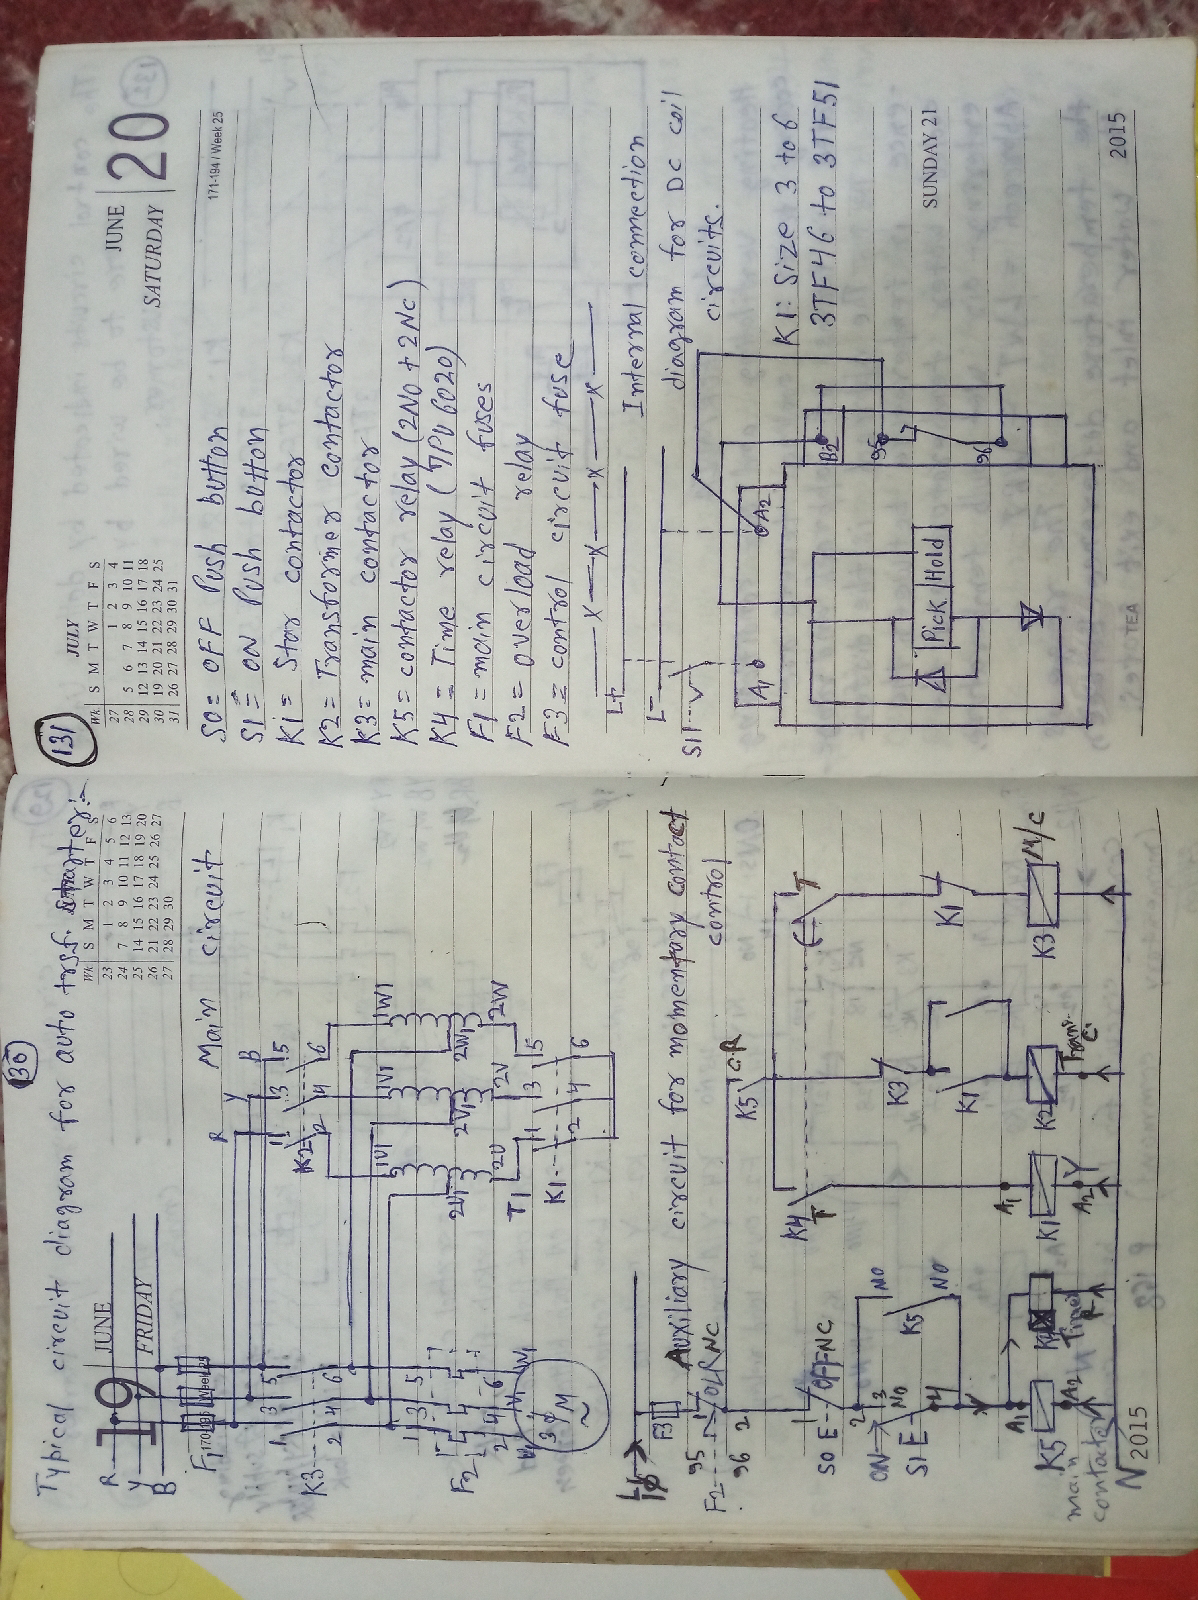 130
Typical circuit diagram for auto trsf. starter:-
19
JUNE
FRIDAY
Wk S M T W T F S
23 1 2 3 4 5 6
24 7 8 9 10 11 12 13
25 14 15 16 17 18 19 20
26 21 22 23 24 25 26 27
27 28 29 30
R
Y
B
F1
Main circuit
R Y B
1 3 5
K2
2 4 6
1 3 5
K3
2 4 6
1U1 1V1 1W1
2U1 2V1 2W1
2U 2V 2W
T1
1 3 5
K1
2 4 6
1 3 5
F2
2 4 6
U1 V1 W1
M
3 Φ
~
Auxiliary circuit for momentary contact
control
F3
95
F2
96
OLR NC
2
K5 C.R
1
S0 E
OFF NC
2
ON
3
NO
S1 E
4
K5
NO
NO
K4
T
T
K3
K1
K1
A1
K5
A2
main
contactor
K4
Timer
R
A1
K1
A2
Y
K2
Trans.
C.
K3
M/C
N
2015
131
JULY
Wk S M T W T F S
27 1 2 3 4
28 5 6 7 8 9 10 11
29 12 13 14 15 16 17 18
30 19 20 21 22 23 24 25
31 26 27 28 29 30 31
JUNE
SATURDAY
20
171-194 / Week 25
S0 = OFF Push button
S1 = ON Push button
K1 = Star contactor
K2 = Transformer contactor
K3 = main contactor
K5 = contactor relay (2NO + 2NC)
K4 = Time relay (7PU 6020)
F1 = main circuit fuses
F2 = overload relay
F3 = control circuit fuse
—x—x—x—x—
L+
L-
Internal connection
diagram for DC coil
circuits.
S1
A1
A2
K1: Size 3 to 6
3TF46 to 3TF51
B2
95
96
Pick Hold
SUNDAY 21
TEA
2015